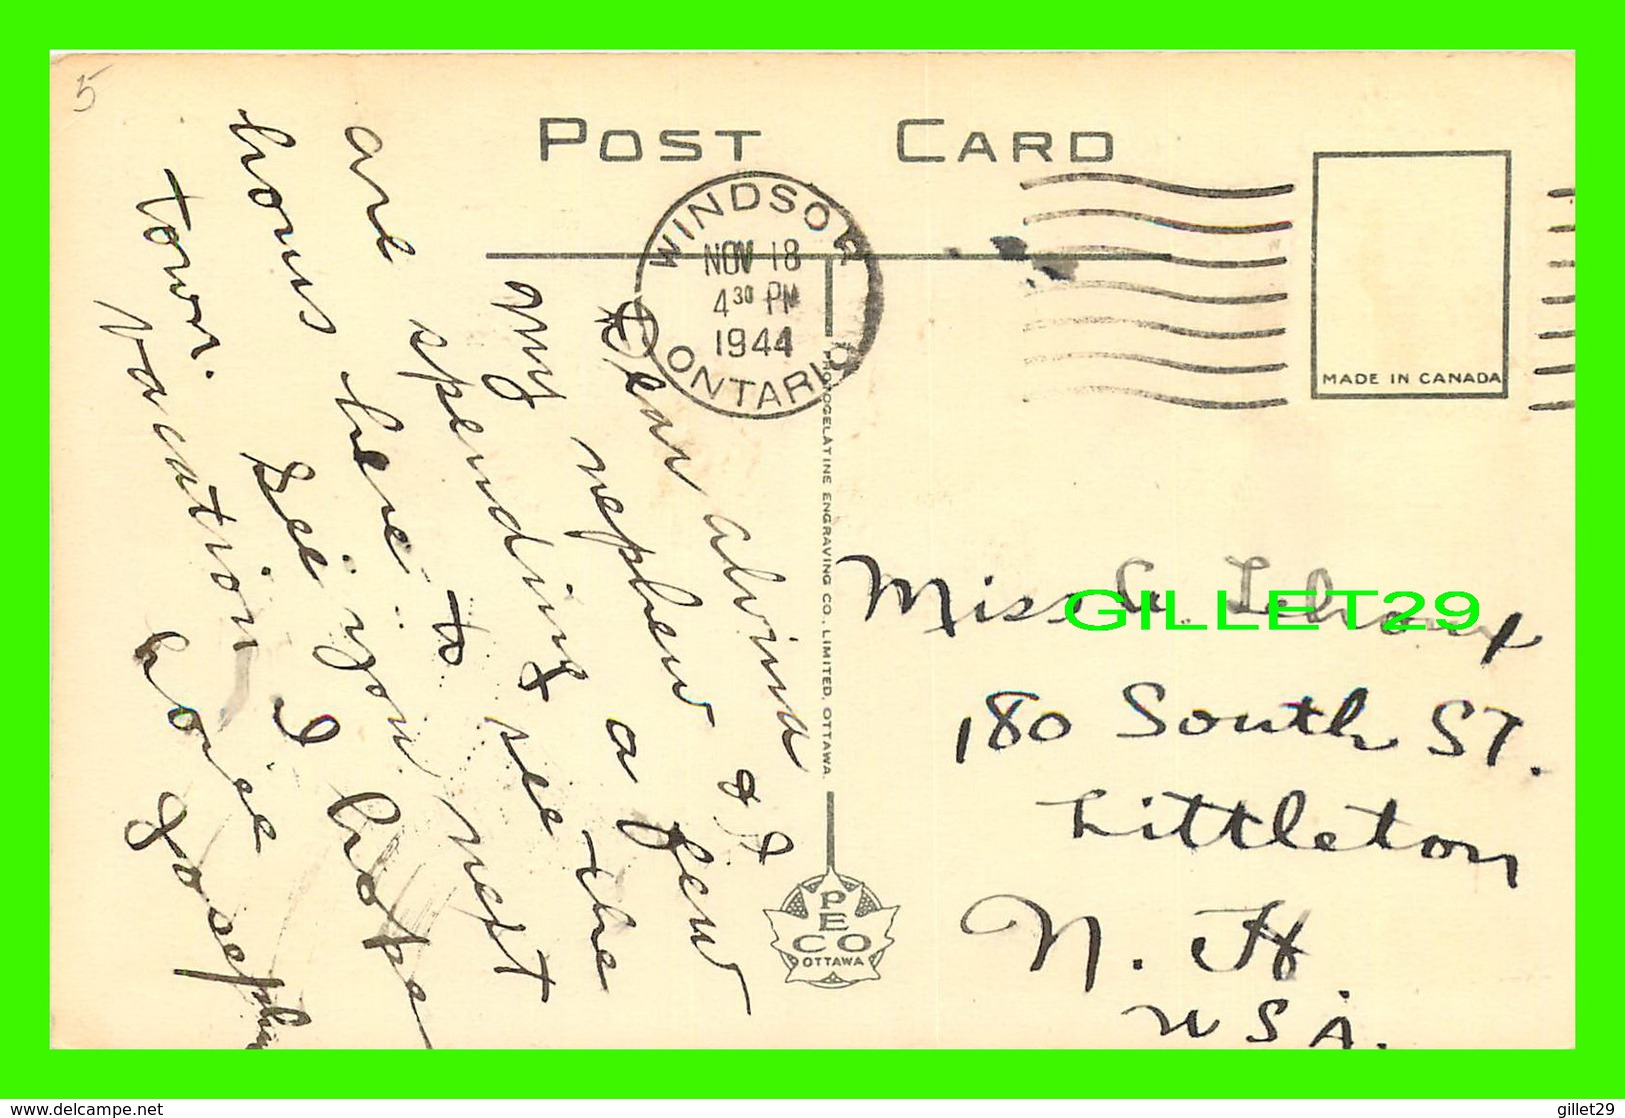 5
POST CARD
WINDSOR
NOV 18
4 30 PM
1944
ONTARIO
MADE IN CANADA
Dear alvina
my nephew & I
are spending a few
hours here to see the
town. See you next
Vacation I hope
love
Joseph
PHOTOGELATINE ENGRAVING CO., LIMITED, OTTAWA.
PECO
OTTAWA
Miss A.
180 South ST.
Littleton
N. H.
U S A.
GILLET29
www.delcampe.net
gillet29